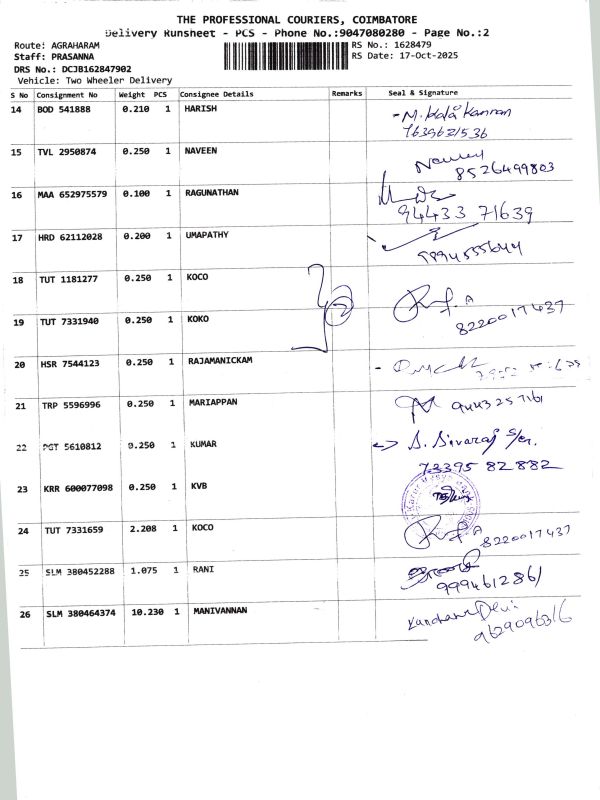 THE PROFESSIONAL COURIERS, COIMBATORE
Delivery Runsheet - PCS - Phone No.:9047080280 - Page No.:2
Route: AGRAHARAM
RS No.: 1628479
Staff: PRASANNA
RS Date: 17-Oct-2025
DRS No.: DCJB162847902
Vehicle: Two Wheeler Delivery
S No Consignment No Weight PCS Consignee Details Remarks Seal & Signature
14 BOD 541888 0.210 1 HARISH
7639621536
15 TVL 2950874 0.250 1 NAVEEN
8526499803
16 MAA 652975579 0.100 1 RAGUNATHAN
94433 71639
17 HRD 62112028 0.200 1 UMAPATHY
18 TUT 1181277 0.250 1 KOCO
19 TUT 7331940 0.250 1 KOKO
8220017437
20 HSR 7544123 0.250 1 RAJAMANICKAM
21 TRP 5596996 0.250 1 MARIAPPAN
9443257161
22 PGT 5610812 0.250 1 KUMAR S. Sivaraj S/o.
73395 82882
23 KRR 600077098 0.250 1 KVB
24 TUT 7331659 2.208 1 KOCO
8220017437
25 SLM 380452288 1.075 1 RANI
9994612861
26 SLM 380464374 10.230 1 MANIVANNAN
9629096316